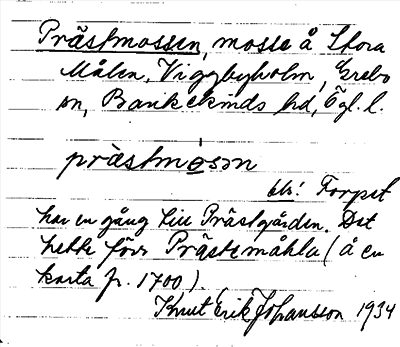 Prästmossen, mosse å Stora
Målen, Viggbyholm, Grebo
sn, Bankekinds hd, Ögl. l.
pràstmósơn
ber: Torpet
har en gång till Prästgården. Det
hette förr Prästemåhla (å en
karta fr. 1700).
Knut Erik Johansson 1934